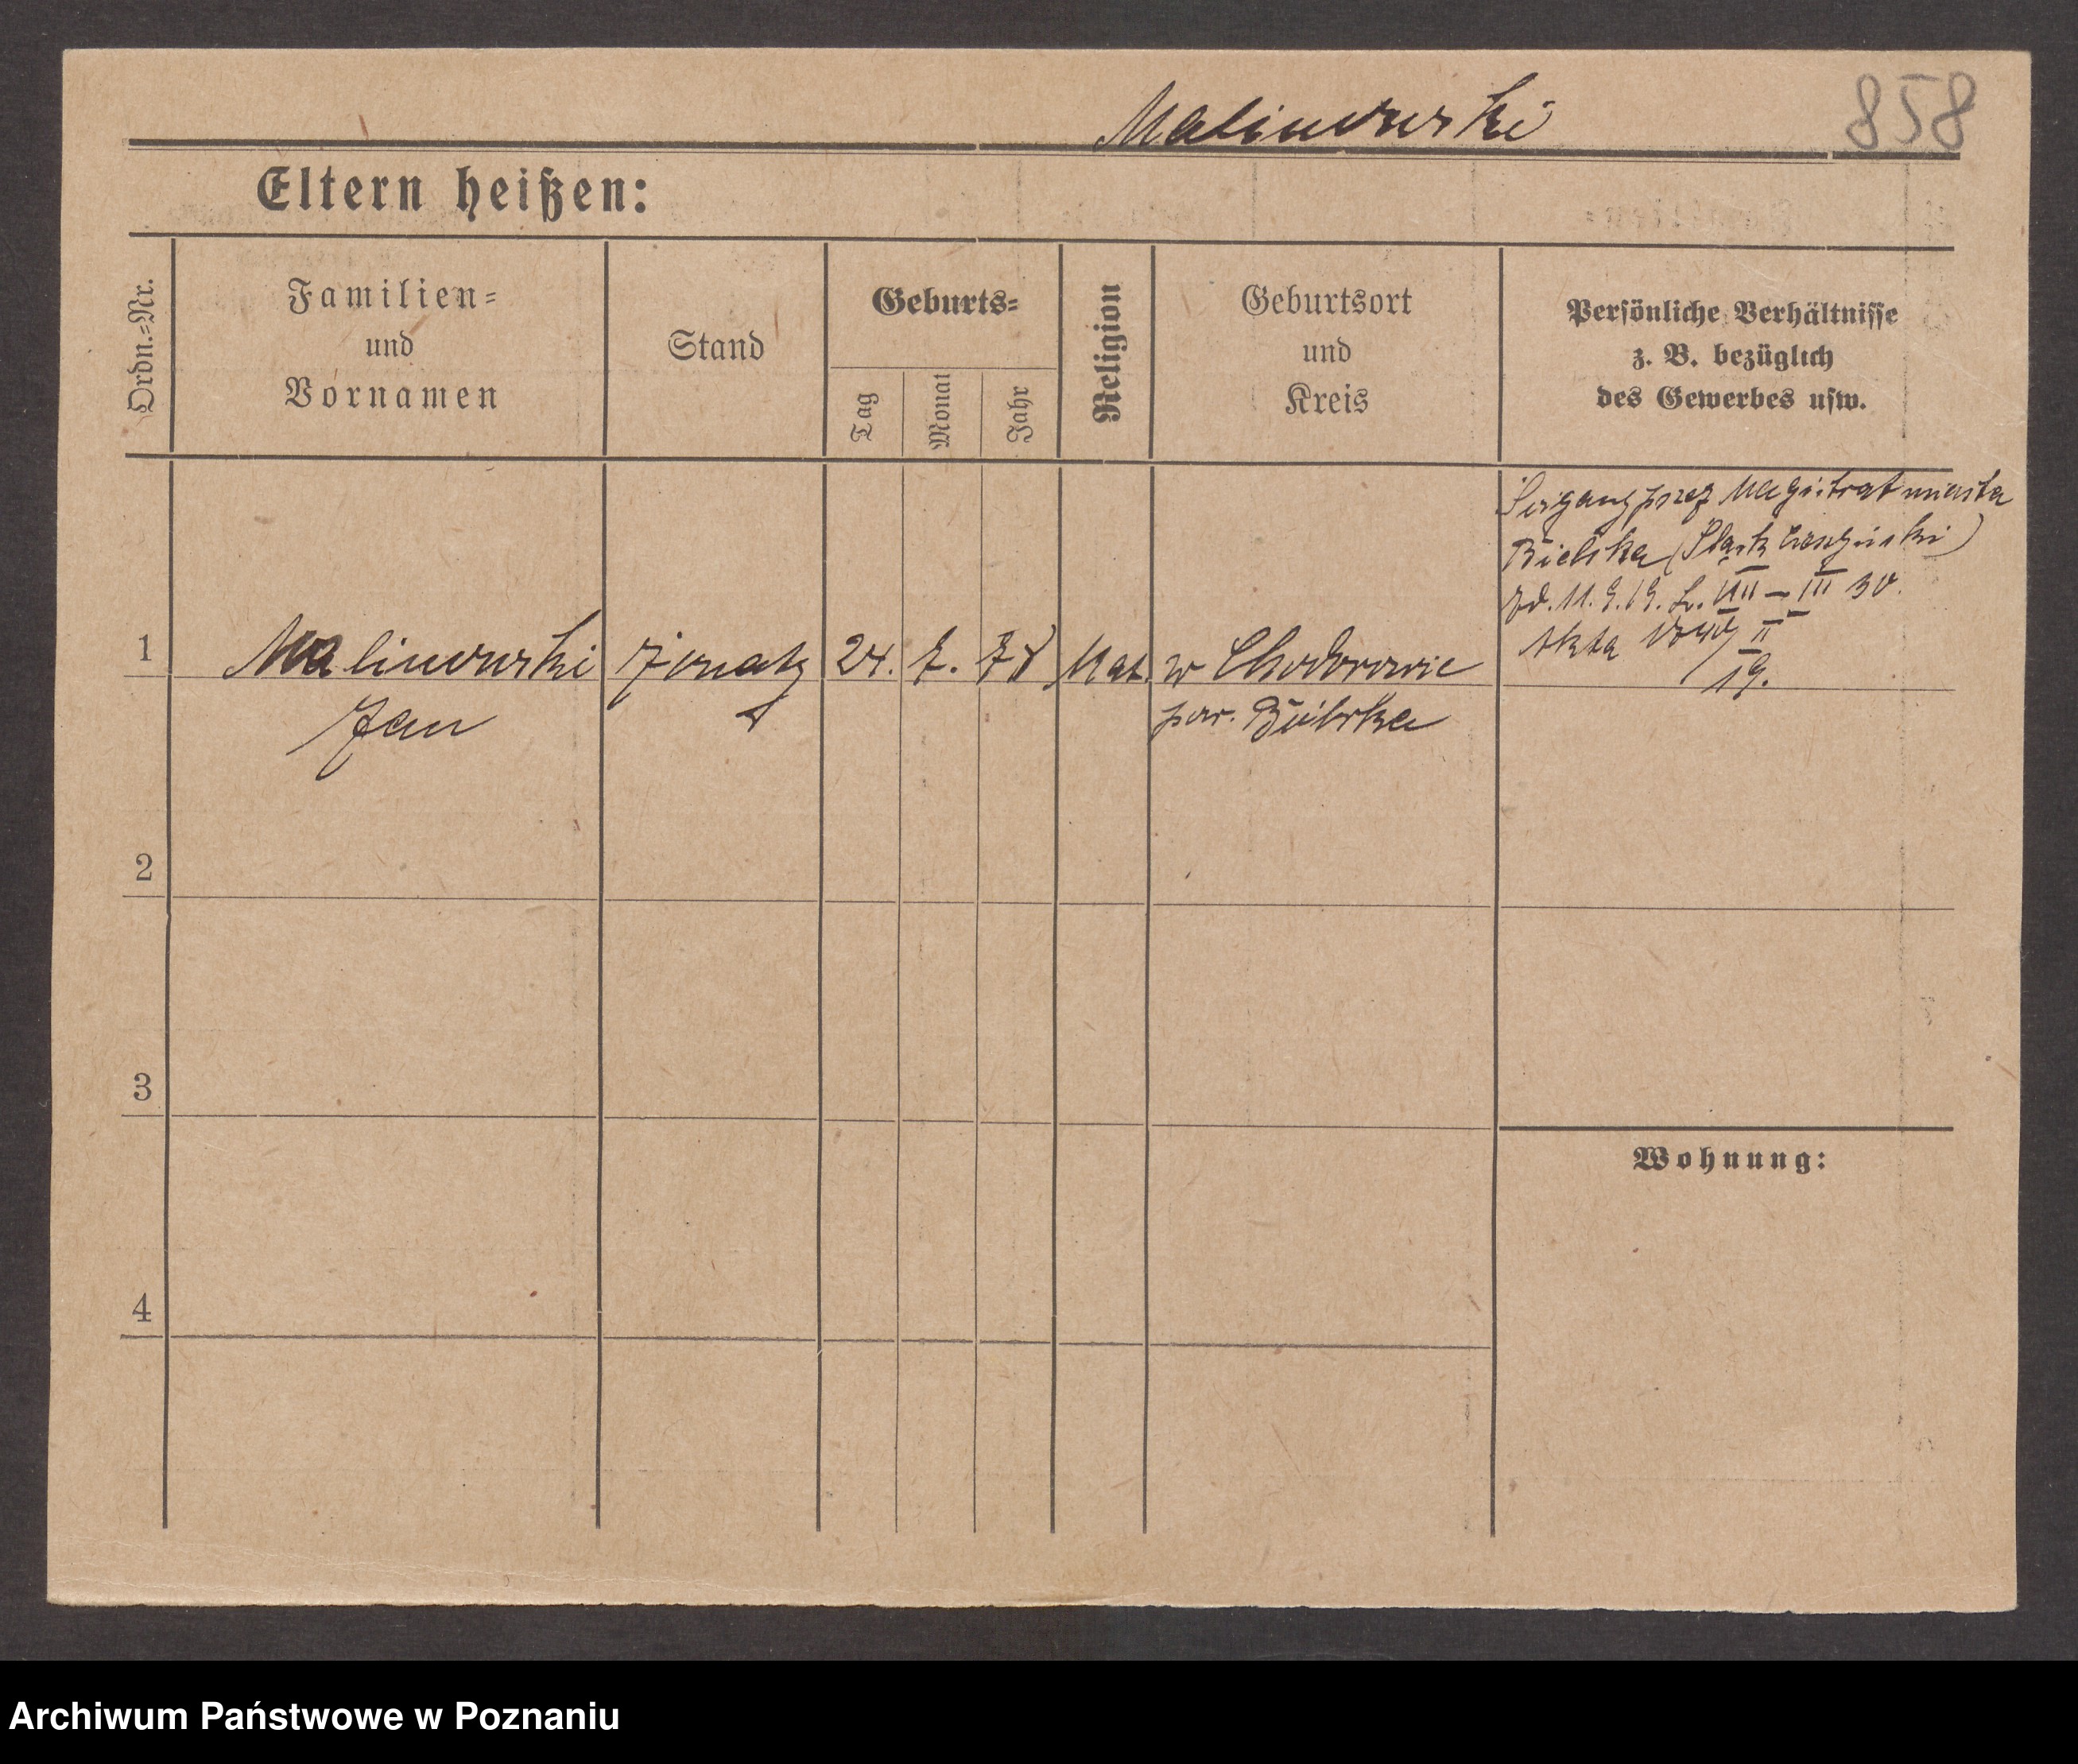 Malinowski 858
Eltern heißen:
Ordn.=Nr.
Familien=
und
Vornamen
Stand
Geburts=
Tag
Monat
Jahr
Religion
Geburtsort
und
Kreis
Persönliche Verhältnisse
z. B. bezüglich
des Gewerbes usw.
Ścigany przez Magistrat miasta
Bielska (Śląsk Cieszyński)
zd. 11. 9. 19. L. VIII – III 30.
Akta II
19.
1 Malinowski żonaty 24. 7. 78 Kat. w Chodorowie
Jan pow. Bóbrka
2
3
Wohnung:
4
Archiwum Państwowe w Poznaniu